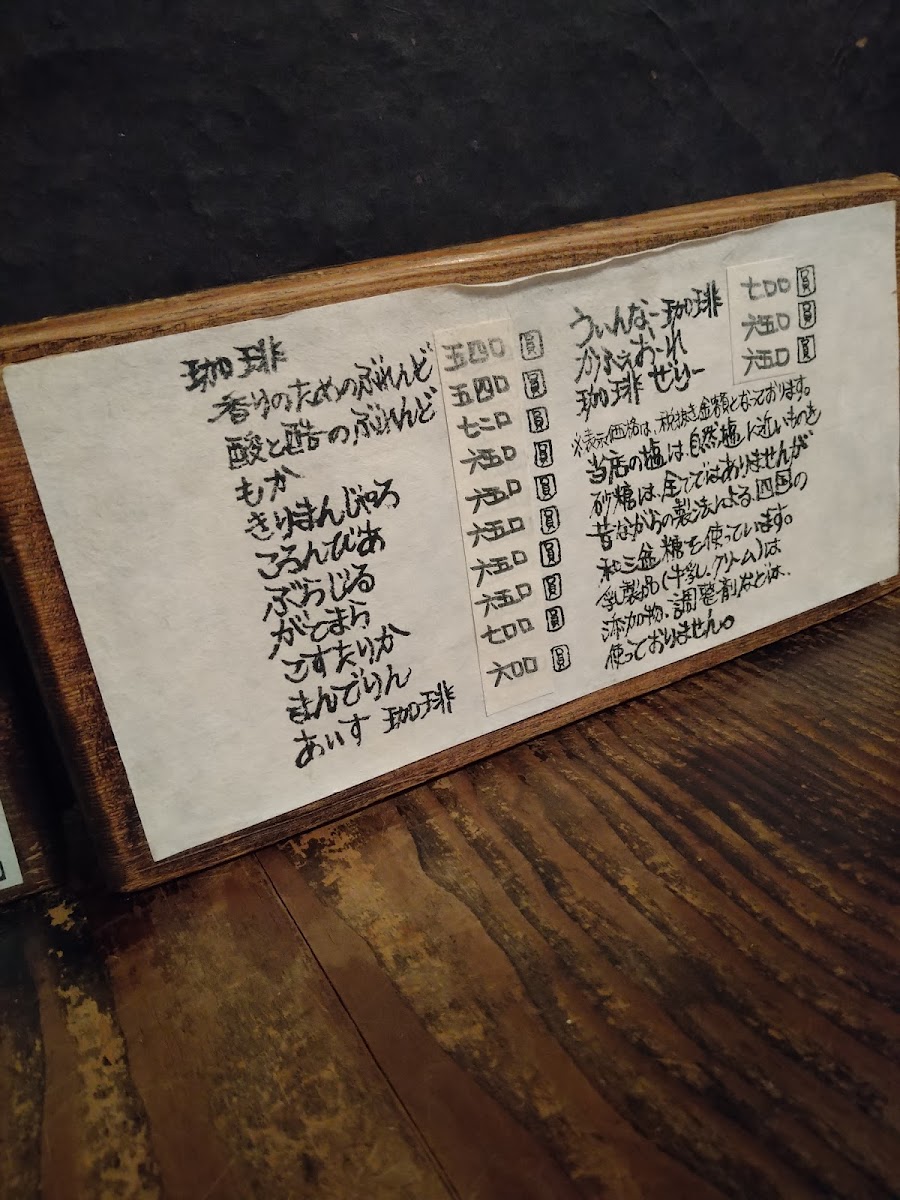 珈琲
香りのためのぶれんど 五四〇 圓
酸と酷のぶれんど 五四〇 圓
もか 七二〇 圓
きりまんじゃろ 六五〇 圓
ころんびあ 六五〇 圓
ぶらじる 六五〇 圓
がてまら 六五〇 圓
こすたりか 六五〇 圓
まんでりん 七〇〇 圓
あいす珈琲 六〇〇 圓
うぃんなー珈琲 七〇〇 圓
かふぇおーれ 六五〇 圓
珈琲ぜりー 六五〇 圓
※表示価格は、税抜き金額となっております。
当店の塩は、自然塩に近いものを
砂糖は、全てではありませんが
昔ながらの製法による四国の
和三盆糖を使っています。
乳製品(牛乳、クリーム)は
添加物、調整剤などは、
使っておりません。